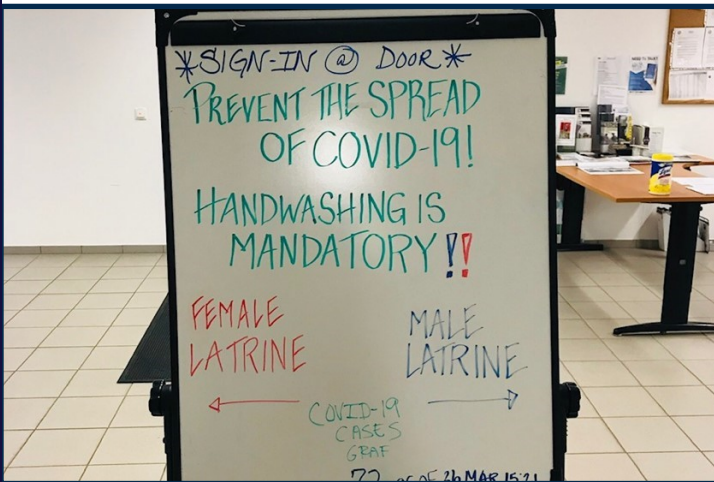 *SIGN-IN @ DOOR*
PREVENT THE SPREAD
OF COVID-19!
HANDWASHING IS
MANDATORY!!
FEMALE
LATRINE
MALE
LATRINE
COVID-19
CASES
GRAF
72 AS OF 26 MAR 15:21